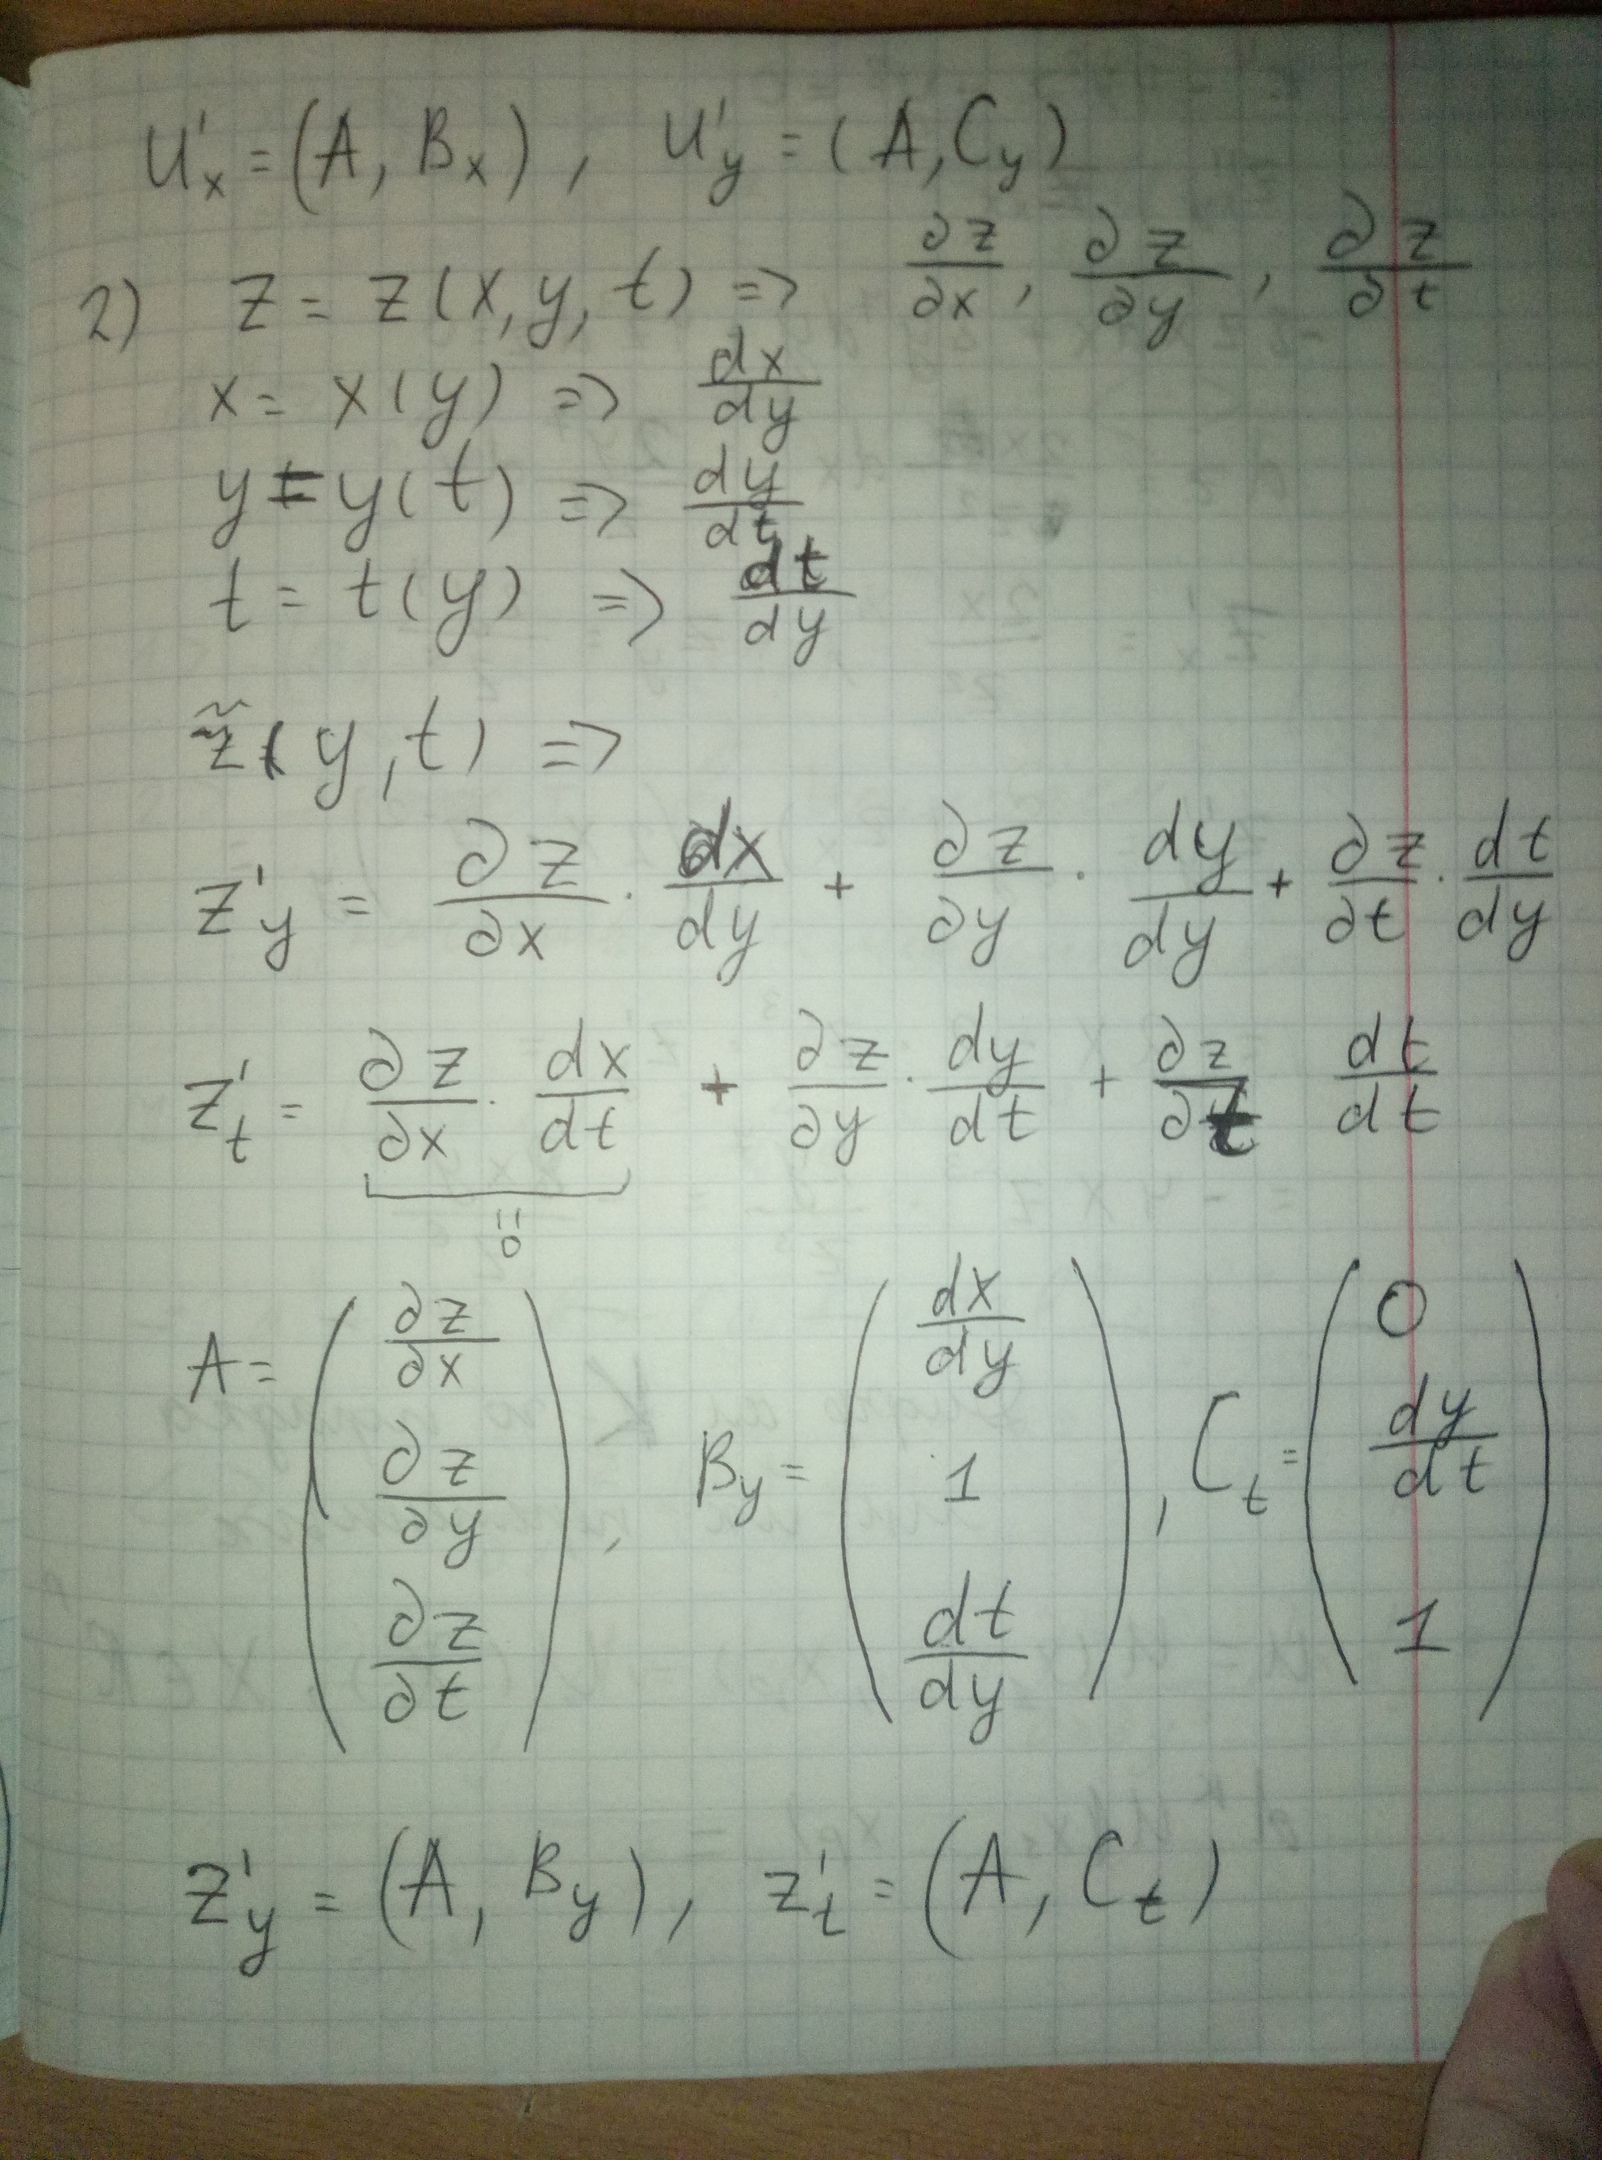 U'ₓ = (A, Bₓ), U'_y = (A, C_y)
2) z = z(x, y, t) => ∂z/∂x, ∂z/∂y, ∂z/∂t
x = x(y) => dx/dy
y = y(t) => dy/dt
t = t(y) => dt/dy
z̃(y, t) =>
z'_y = ∂z/∂x · dx/dy + ∂z/∂y · dy/dy + ∂z/∂t · dt/dy
z'_t = ∂z/∂x · dx/dt + ∂z/∂y · dy/dt + ∂z/∂t dt/dt
=0
A = (∂z/∂x ∂z/∂y ∂z/∂t), B_y = (dx/dy 1 dt/dy), C_t = (0 dy/dt 1)
z'_y = (A, B_y), z'_t = (A, C_t)